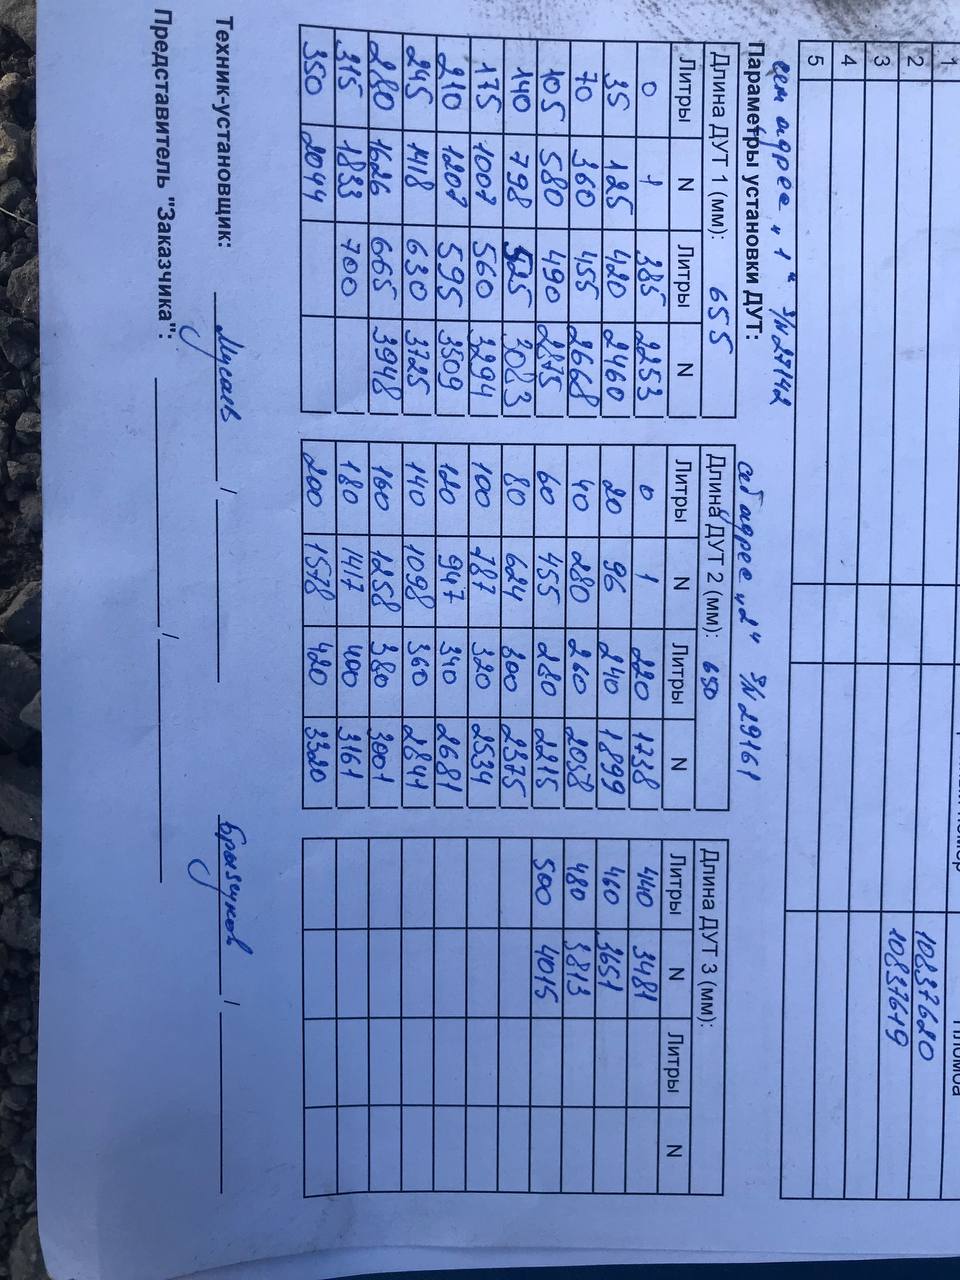 1
2 10837620
3 10837619
4
5
Параметры установки ДУТ:
сет адрес "1" S/N 27142
сет адрес "2" S/N 29161
Длина ДУТ 1 (мм): 655
Литры N Литры N
0 1 385 2253
35 125 420 2460
70 360 455 2668
105 580 490 2875
140 798 525 3083
175 1007 560 3294
210 1207 595 3509
245 1418 630 3725
280 1626 665 3948
315 1833 700
350 2044
Длина ДУТ 2 (мм): 650
Литры N Литры N
0 1 220 1738
20 96 240 1899
40 280 260 2058
60 455 280 2215
80 624 300 2375
100 787 320 2534
120 947 340 2681
140 1098 360 2841
160 1258 380 3001
180 1417 400 3161
200 1578 420 3320
Длина ДУТ 3 (мм):
Литры N Литры N
440 3481
460 3651
480 3813
500 4015
Техник-установщик: Мусаев / /
Представитель "Заказчика": / /